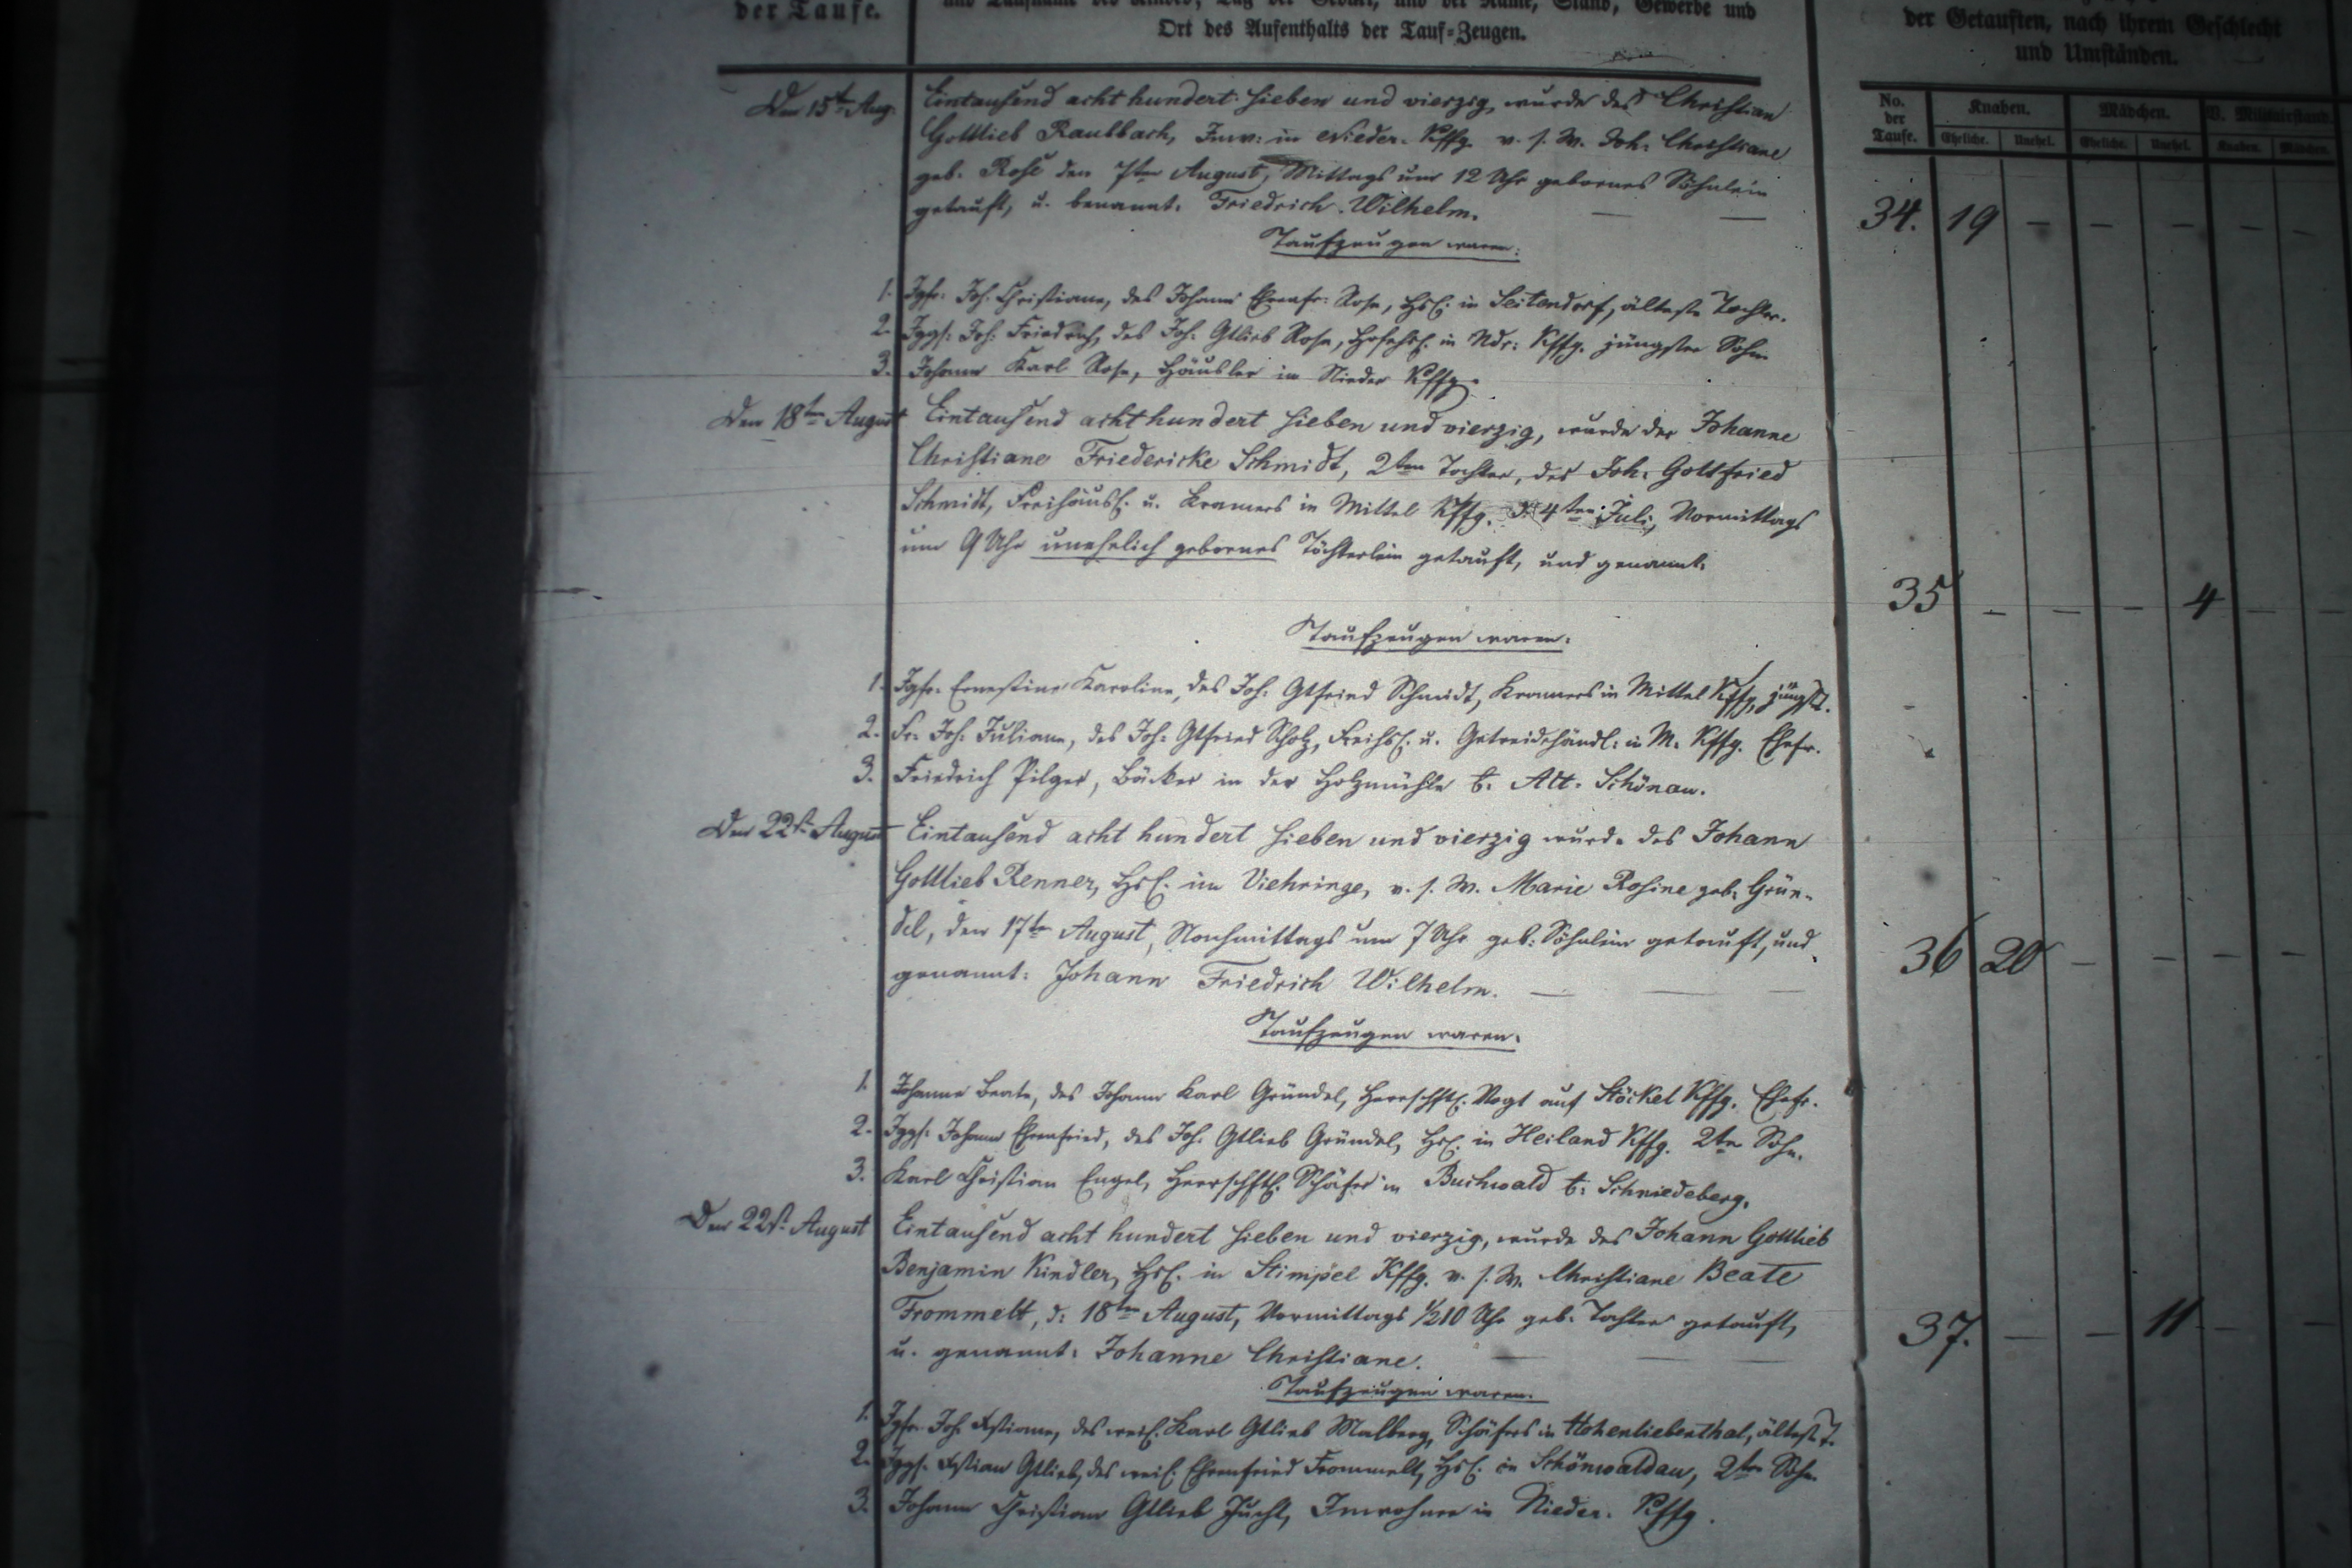 der Taufe.
und Taufname des Kindes, Tag der Geburt, und der Name, Stand, Gewerbe und
Ort des Aufenthalts der Tauf-Zeugen.
der Getauften, nach ihrem Geschlecht
und Umständen.
No. der Taufe. Knaben. Mädchen. Militairstand.
Eheliche. Unehel. Eheliche. Unehel. Knaben. Mädchen.
Den 15ten Aug. Eintausend acht hundert sieben und vierzig, wurde des Christian
Gottlieb Raubbach, Inw: in Nieder-Kffg. v. s. W. Joh: Christiane
geb. Rose den 7ten August, Mittags um 12 Uhr gebornes Söhnlein
getauft, u. benannt: Friedrich Wilhelm. — —
34. 19 — — — — —
Taufzeugen waren:
1. Jgfr: Joh. Christiane, des Johann Ehrenfr: Rose, Hsl: in Seitendorf, älteste Tochter.
2. Jggs: Joh: Friedrich, des Joh: Gtlieb Rose, Hofehsl. in Ndr: Kffg. jüngster Sohn
3. Johann Karl Rose, Häusler in Nieder Kffg.
Den 18ten August Eintausend acht hundert sieben und vierzig, wurde der Johanne
Christiane Friedericke Schmidt, 2ten Tochter, des Joh: Gottfried
Schmidt, Freihäusl. u. Kramers in Mittel Kffg. d: 4ten Juli, Vormittags
um 9 Uhr unehelich gebornes Töchterlein getauft, und genannt:
35 — — — 4 — —
Taufzeugen waren:
1. Jgfr: Ernestine Karoline, des Joh: Gtfried Schmidt, Kramers in Mittel Kffg. jüngst.
2. Fr. Joh: Juliane, des Joh: Gtfried Scholz, Freihsl. u. Getreidehändl: in M. Kffg. Ehefr.
3. Friedrich Pilger, Bäcker in der Holzmühle b. Alt-Schönau.
Den 22st. August Eintausend acht hundert sieben und vierzig wurde des Johann
Gottlieb Renner, Hsl. im Viehringe, v. s. W. Marie Rosine geb: Grün-
del, den 17ten August, Nachmittags um 7 Uhr geb: Söhnlein getauft, und
genannt: Johann Friedrich Wilhelm. — — —
36 20 — — — —
Taufzeugen waren:
1. Johanne Beate, des Johann Karl Gründel, Herrschftl. Vogt auf Stöckel Kffg. Ehefr.
2. Jggs: Johann Ehrenfried, des Joh: Gtlieb Gründel, Hsl. in Heiland Kffg. 2ter Sohn.
3. Karl Christian Engel, Herrschftl. Schäfer in Buchwald b: Schmiedeberg.
Den 22st. August Eintausend acht hundert sieben und vierzig, wurde des Johann Gottlieb
Benjamin Kindler, Hsl. in Stimpel Kffg. v. s. W. Christiane Beate
Frommelt, d: 18ten August, Vormittags 1/210 Uhr geb: Tochter getauft,
u. genannt: Johanne Christiane. — — —
37. — — 11 — —
Taufzeugen waren.
1. Jgfr. Joh: Xstiane, des weil. Karl Gtlieb Malberg, Schäfers in Hohenliebenthal, ältest. T.
2. Jggs. Xstian Gtlieb, des weil: Ehrenfried Frommelt, Hsl. in Schönwaldau, 2ter Sohn
3. Johann Christian Gtlieb Jucht, Inwohner in Nieder-Kffg.